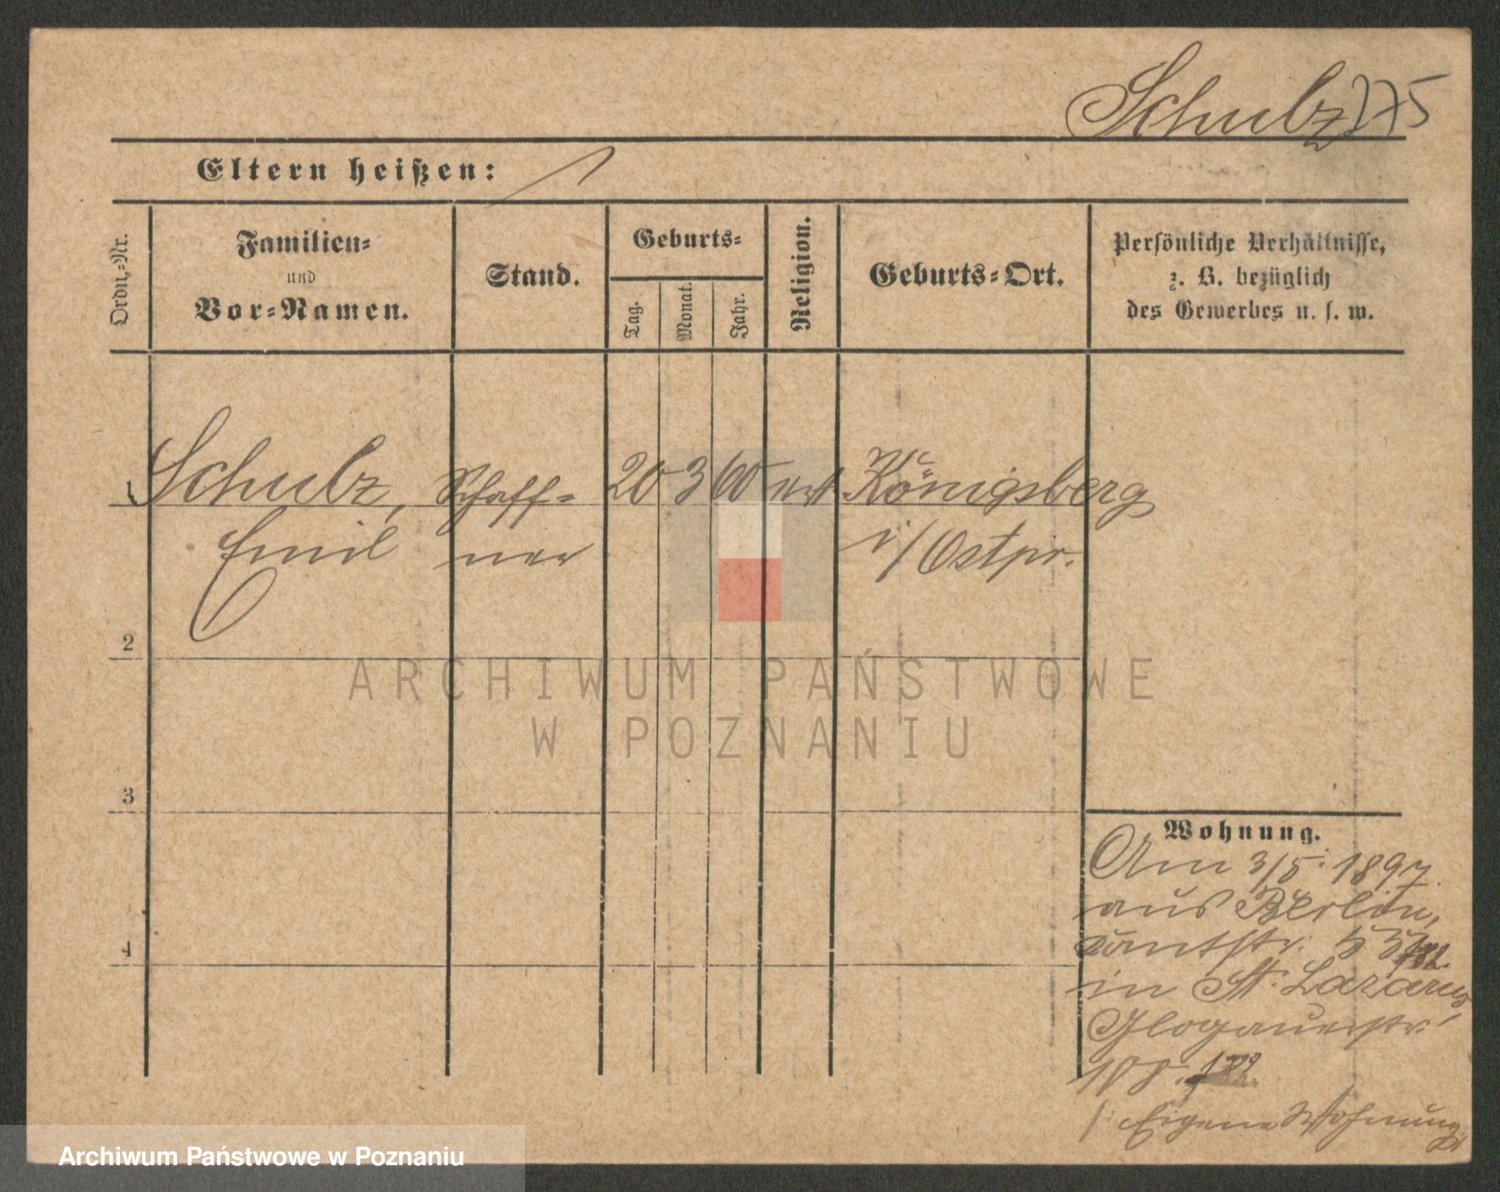 Schulz 275
Eltern heißen:
Ordn.-Nr.
Familien-
und
Vor-Namen.
Stand.
Geburts-
Tag.
Monat.
Jahr.
Religion.
Geburts-Ort.
Persönliche Verhältnisse,
z. B. bezüglich
des Gewerbes u. s. w.
1 Schulz, Schaff- 20 3 60 Königsberg
Emil ner i/Ostpr.
2
3
4
Wohnung.
Am 3/5. 1897
aus Berlin,
in St. Lazarus,
Glogauerstr.
108.
Eigene Wohnung
ARCHIWUM PAŃSTWOWE
W POZNANIU
Archiwum Państwowe w Poznaniu